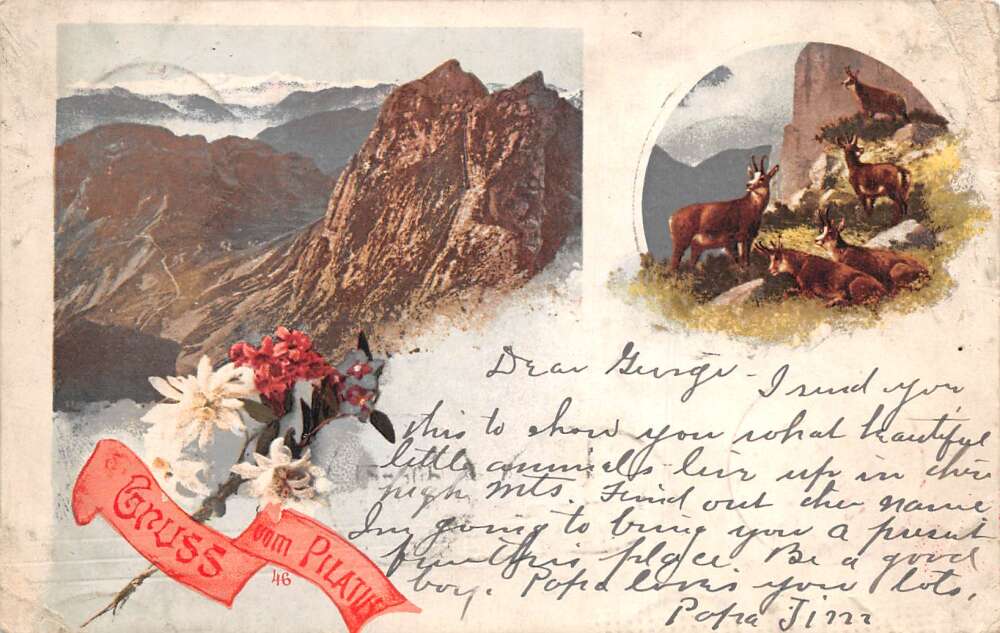 Dear George - I send you
this to show you what beautiful
little animals live up in the
high mts. Find out the name
Im going to bring you a present
from this place. Be a good
boy. Papa loves you lots,
Papa Jim
GRUSS
vom PILATUS
46